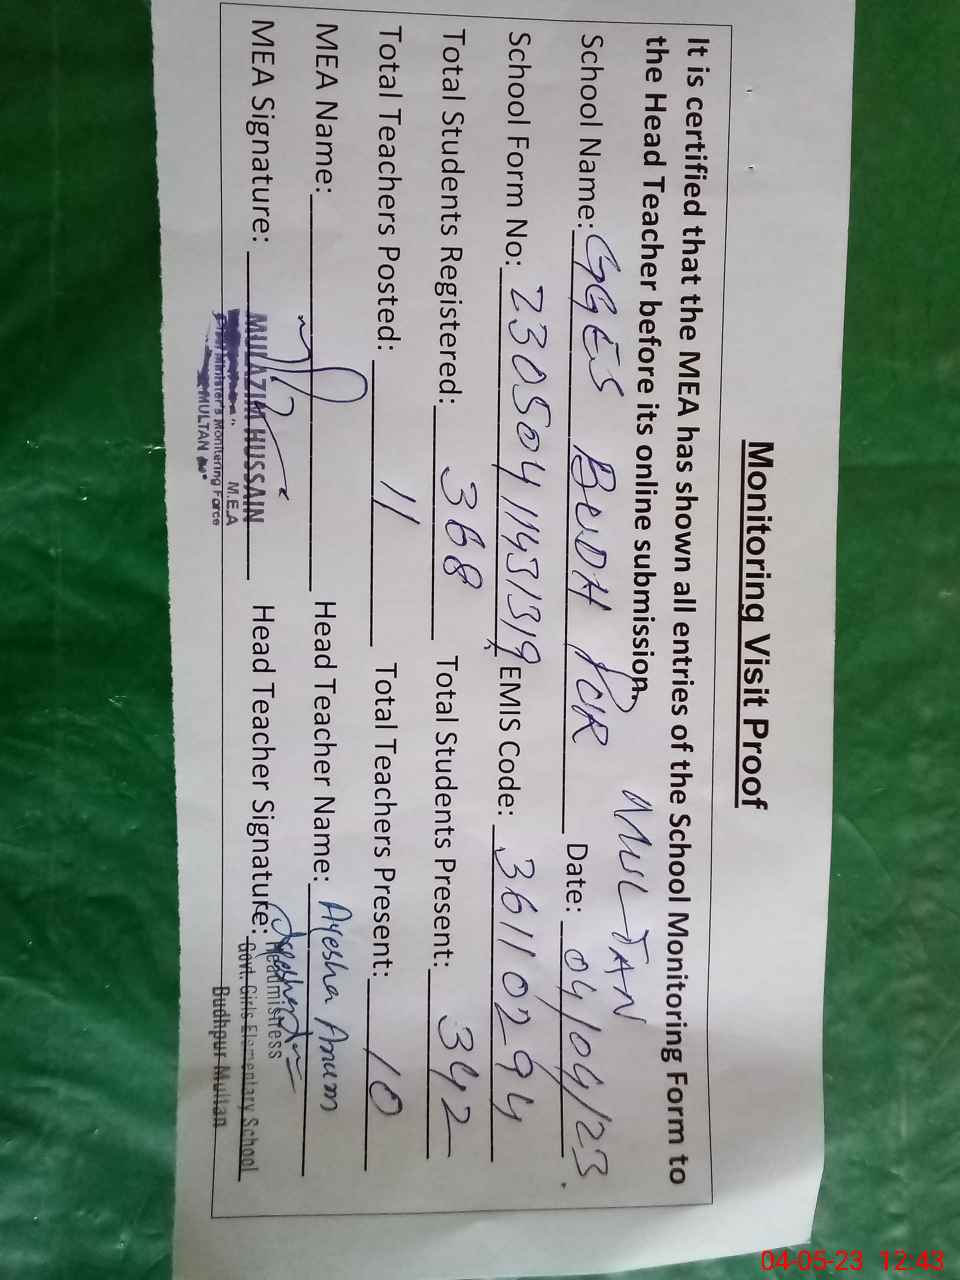 Monitoring Visit Proof
It is certified that the MEA has shown all entries of the School Monitoring Form to
the Head Teacher before its online submission.
MULTAN
School Name: GGES BUDH PUR Date: 04/04/23.
School Form No: 23050411431319 EMIS Code: 36110294
Total Students Registered: 368 Total Students Present: 342
Total Teachers Posted: 11 Total Teachers Present: 10
MEA Name: Head Teacher Name: Ayesha Anum
MEA Signature: Head Teacher Signature:
MULAZIM HUSSAIN
M.E.A
Minister's Monitoring Force
MULTAN
Headmistress
Govt. Girls Elementary School
Budhpur Multan
04-05-23 12:43